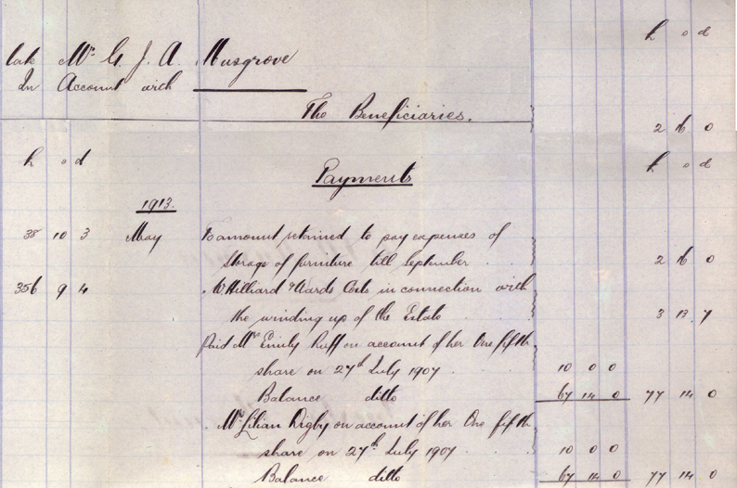 £ s d
late Mr G. J. A. Musgrove
In Account with
The Beneficiaries.
2 16 0
£ s d
£ s d
Payments
1913.
35 10 3 May To amount retained to pay expenses of
Storage of furniture till September 2 16 0
356 9 4 Hilliard & Wards Costs in connection with
the winding up of the Estate 3 13 7
Paid Mrs Emily Ruff on account of her One fifth
share on 27th July 1907 10 0 0
Balance ditto 67 14 0 77 14 0
Mrs Lilian Digby on account of her One fifth
share on 27th July 1907 10 0 0
Balance ditto 67 14 0 77 14 0